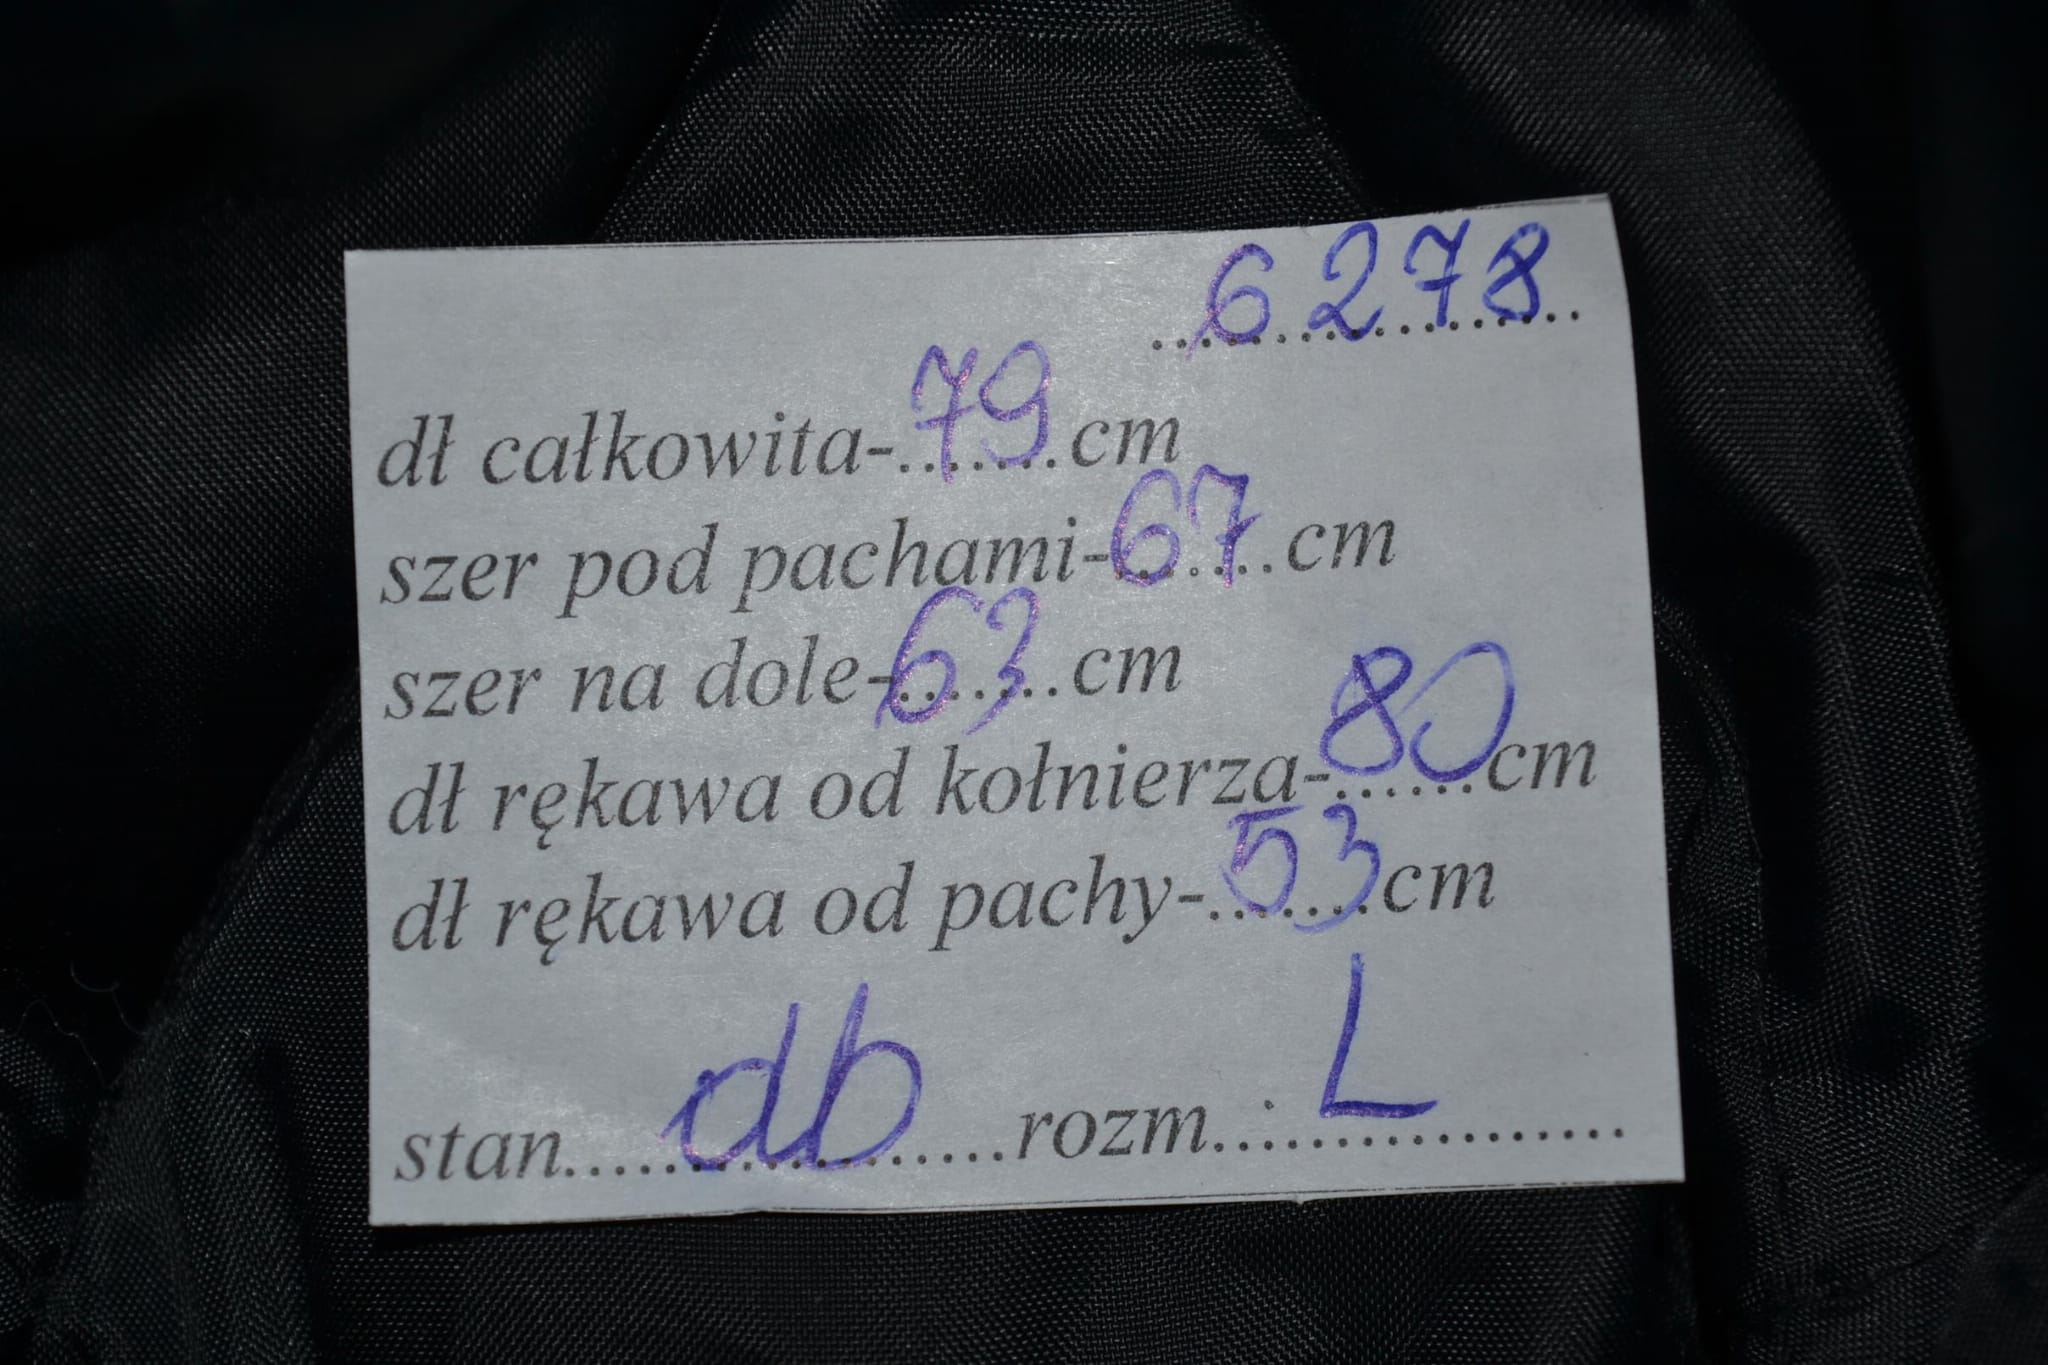 6278
dł całkowita-79cm
szer pod pachami-67cm
szer na dole-63cm
dł rękawa od kołnierza-80cm
dł rękawa od pachy-53cm
stan....db....rozm....L....